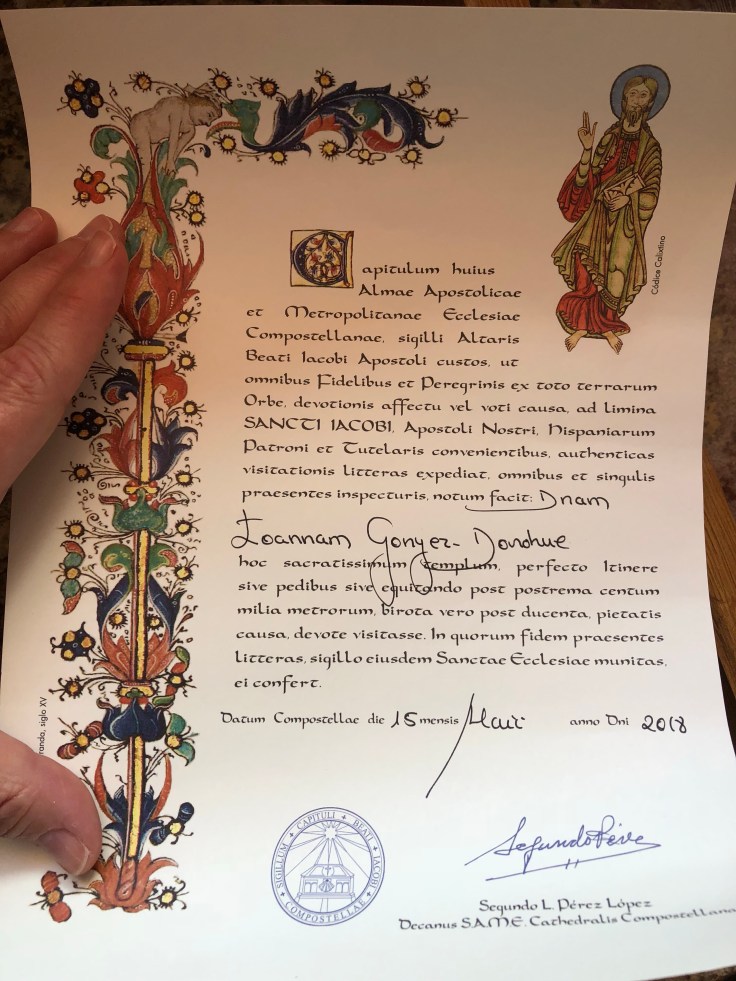 Capitulum huius
Almae Apostolicae
et Metropolitanae Ecclesiae
Compostellanae, sigilli Altaris
Beati Iacobi Apostoli custos, ut
omnibus Fidelibus et Peregrinis ex toto terrarum
Orbe, devotionis affectu vel voti causa, ad limina
SANCTI IACOBI, Apostoli Nostri, Hispaniarum
Patroni et Tutelaris convenientibus, authenticas
visitationis litteras expediat, omnibus et singulis
praesentes inspecturis, notum facit: Dnam
Ioannam Gonyer-Donohue
hoc sacratissimum templum, perfecto Itinere
sive pedibus sive equitando post postrema centum
milia metrorum, birota vero post ducenta, pietatis
causa, devote visitasse. In quorum fidem praesentes
litteras, sigillo eiusdem Sanctae Ecclesiae munitas,
ei confert.
Datum Compostellae die 15 mensis Maii anno Dni 2018
Segundo L. Pérez López
Decanus S.A.M.E. Cathedralis Compostellana
SIGILLUM CAPITULI BEATI IACOBI COMPOSTELLAE
Códice Calixtino
randa, siglo XV